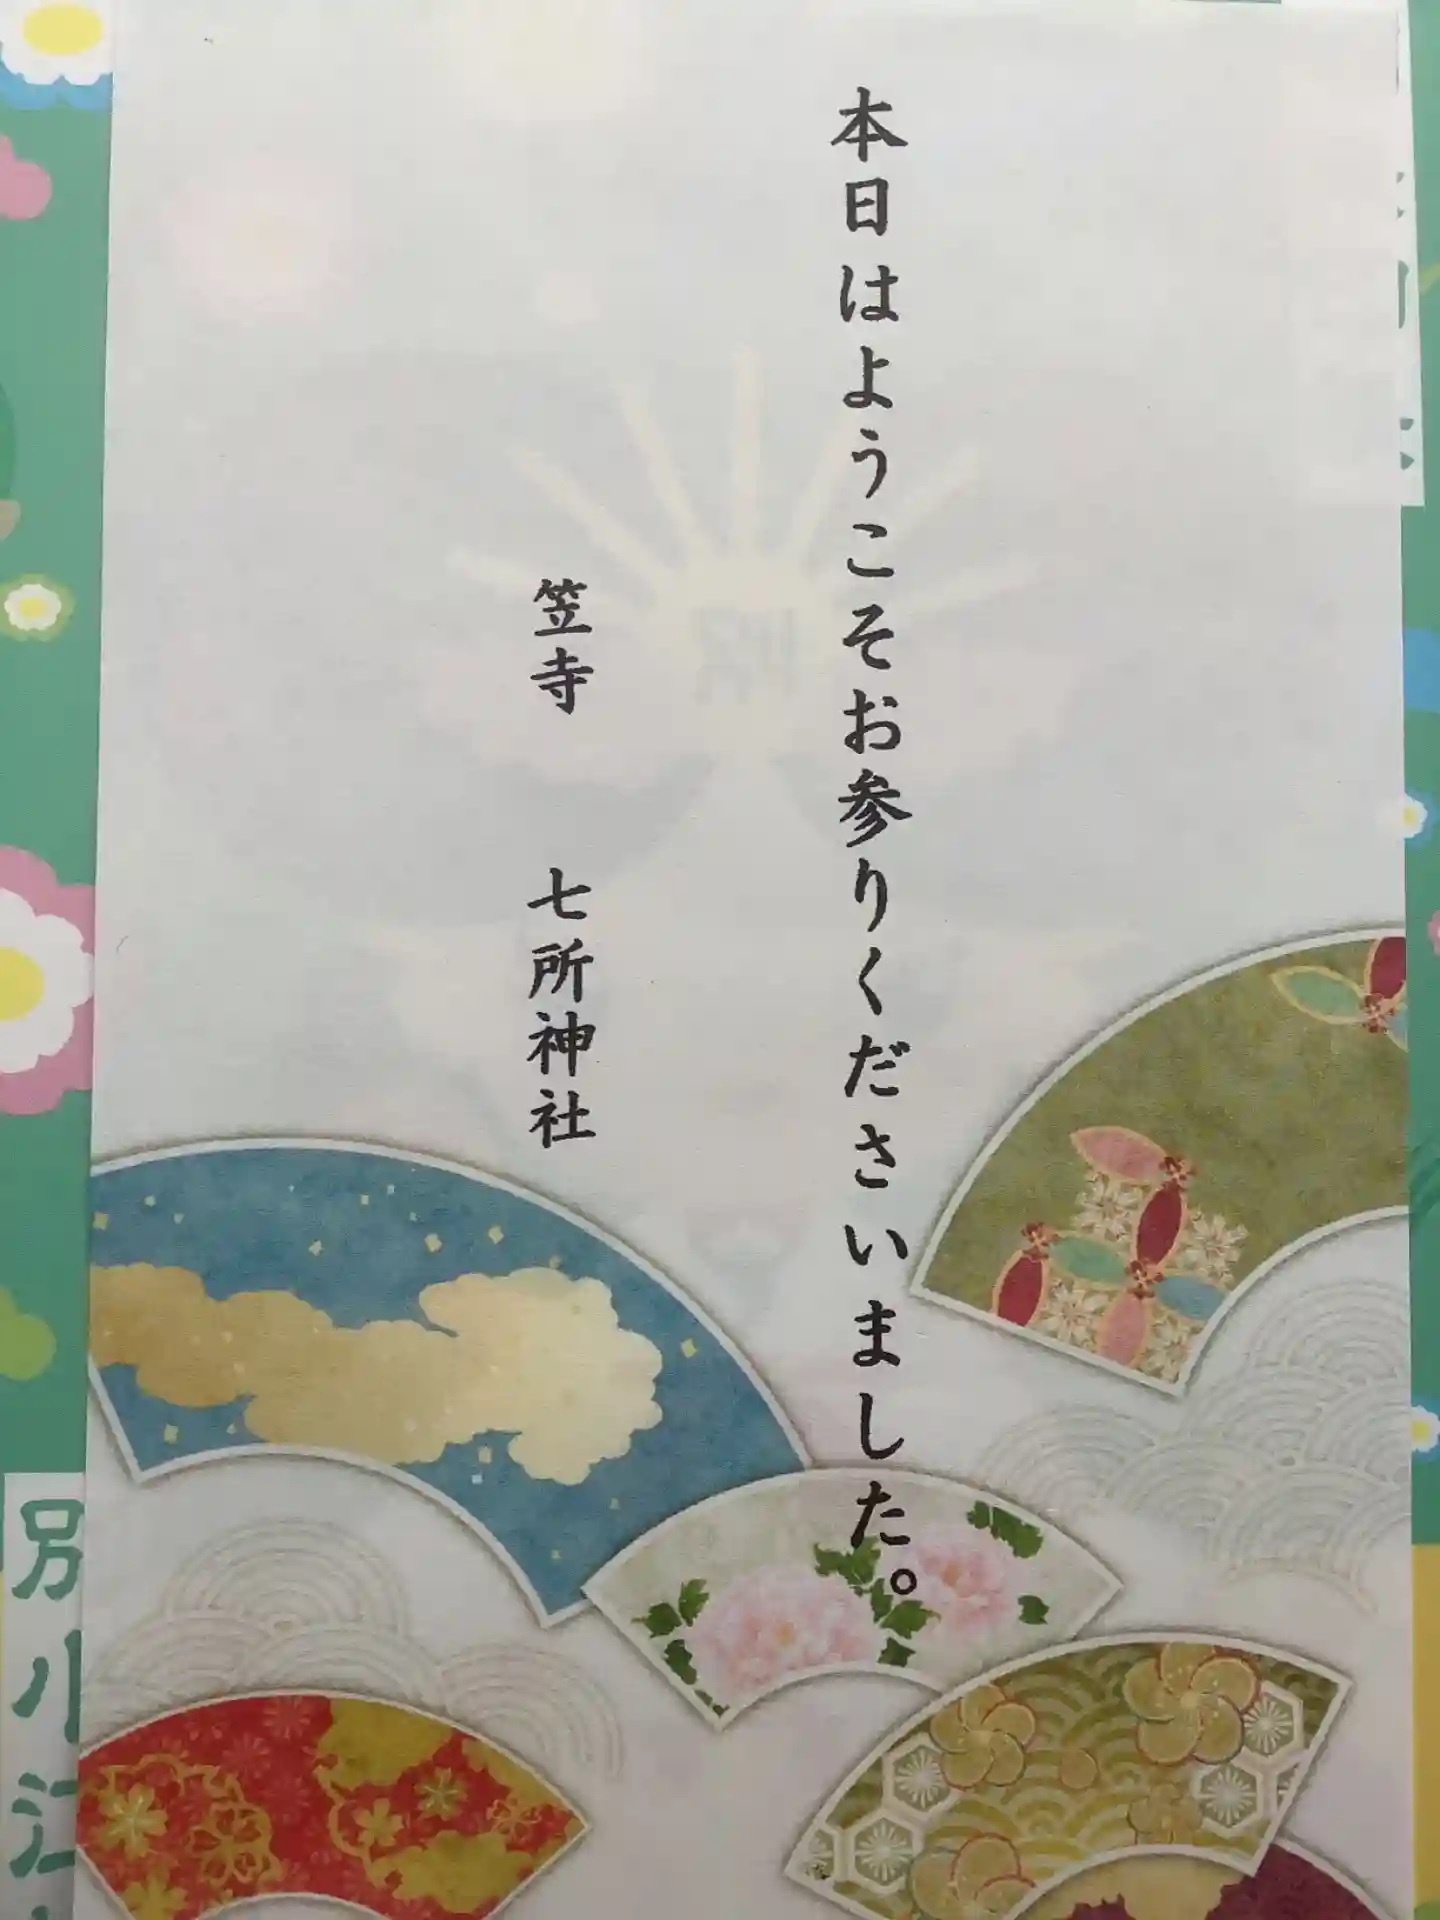 本日はようこそお参りくださいました。
笠寺　七所神社
別小江